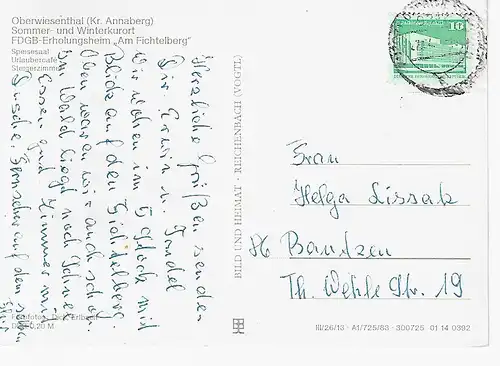 Oberwiesenthal (Kr. Annaberg)
Sommer- und Winterkurort
FDGB-Erholungsheim „Am Fichtelberg"
Speisesaal
Urlaubercafé
Steigerzimmer
Herzliche Grüßen senden
Dir Erwin u. Traudel
Wir wohnen im 5 Stock mit
Blick auf den Fichtelberg.
Oben waren wir auch schon.
Im Wald liegt noch Schnee.
Essen und Zimmer mit
Dusche, Fernseher auf dem selben
BILD UND HEIMAT · REICHENBACH (VOGTL)
10
Frau
Helga Lissak
86 Bautzen
Th. Wehle Str. 19
0,20 M
III/26/13 · A1/725/83 · 300725 01 14 0392